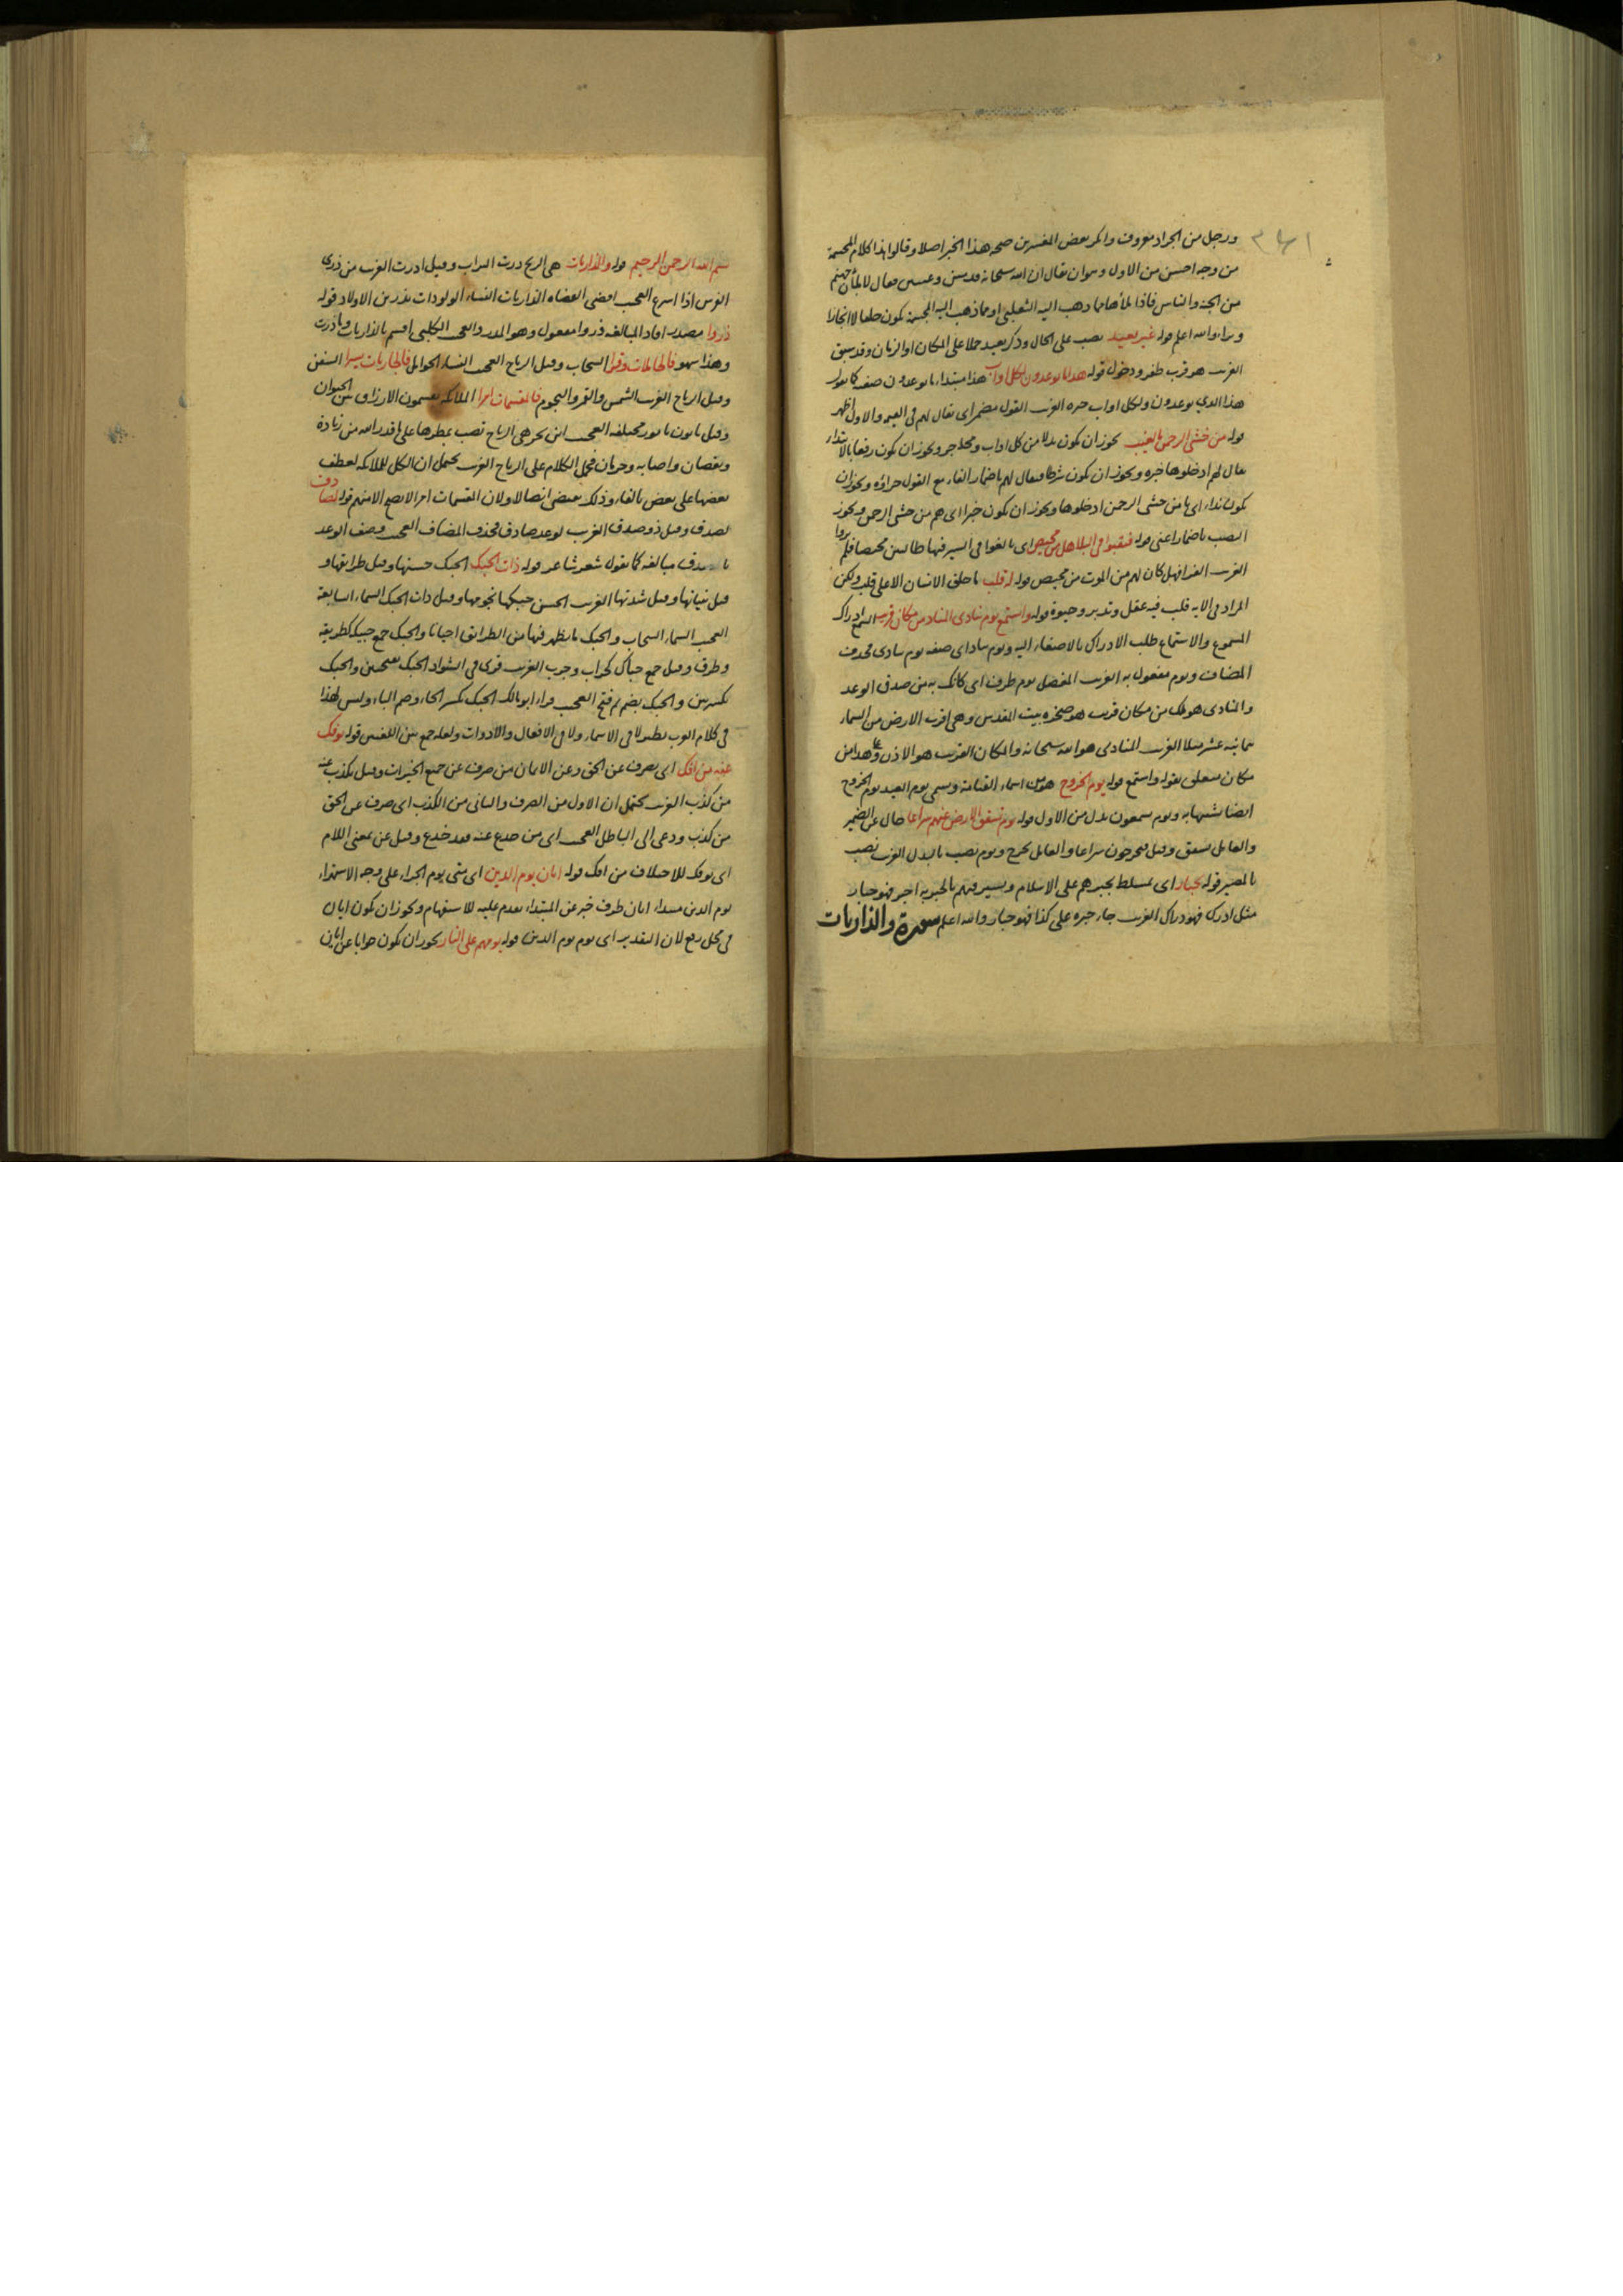 ورجل من الجراد معروف وانكر بعض المفسرين صحه هذا الخبر اصلا وقالوا هذا كلام المجسمة
من وجه احسن من الاول وهوان يقال ان الله سبحانه وعيسى فقال لاملأن جهنم
من الجنه والناس فاذا ملأها ذهب اليه الثعلبى اوما ذهب اليه المجسمة يكون خلفا لا انجازا
والله اعلم قوله غير بعيد نصب على الحال وذكر بعيد حملا على المكان او الزمان وقد سبق
الغريب هو قرب ظفر ودخول قوله هذا ما توعدون لكل اواب هذا مبتداء ما توعدون صفه كما تقول
هذا الذي توعدون ولكل اواب خبره الغريب القول مضمر اى يقال لهم فى والاول اظهر
قوله من خشى الرحمن بالغيب يجوز ان يكون بدلا من كل اواب ومحله جر ويجوز ان يكون رفعا بالابتداء
يقال لهم ادخلوها خبره ويجوز ان يكون شرطا فيقال لهم باضمار الفاء مع القول جزاؤه ويجوز ان
يكون نداء اى يا من خشى الرحمن ادخلوها ويجوز ان يكون خبرا اى هم من خشى الرحمن ويجوز
النصب باضمار اعنى قوله فنقبوا فى البلاد هل من محيص اى بالغوا فى السير فيها طالبين محيصا فلم يروا
الغريب الفرا فهل كان لهم من الموت من محيص قوله له قلب ما خلق الانسان الا على قلب ولكن
المراد فى الايه قلب فيه عقل وتدبر وحيوة قوله واستمع يوم ينادى المناد من مكان قريب السمع ادراك
المسموع والاستماع طلب الادراك بالاصغاء اليه ويوم يناد اى صفه يوم ينادى محذوف
المضاف ويوم مفعول به الغريب المفضل يوم ظرف اى كانك به من صدق الوعد
والمنادى هو ملك من مكان قريب هو صخره بيت المقدس وهى اقرب الارض من السماء
ثمانيه عشر ميلا الغريب المنادى هو الله سبحانه والمكان القريب هو الاذن
مكان متعلق بقوله واستمع قوله يوم الخروج هو من اسماء القيامة وسمى يوم العيد يوم الخروج
ايضا تشبيها به ويوم يسمعون بدل من الاول قوله يوم تشقق الارض عنهم سراعا حال عن الضمير
والعامل تشقق وقيل فيخرجون سراعا والعامل يخرج ويوم نصب بالبدل الغريب نصب
بالمصير قوله بجبار اى بمسلط يجبرهم على الاسلام اجبر فهو جبار
مثل ادرك فهو دراك الغريب جاء جبره على كذا فهو جبار والله اعلم سورة والذاريات
بسم الله الرحمن الرحيم قوله والذاريات هى الريح ذرت التراب وقيل اذرت الغريب من ذرى
الفرس اذا اسرع العجيب الذاريات النساء الولودات يذرين الاولاد قوله
ذروا مصدر افاد المبالغه ذروا مفعول وهو المذرو العجيب الكلبى اقسم بالذاريات وما ذرت
وهذا سهو فالحاملات وقرا السحاب وقيل الرياح العجيب النساء الحوامل فالجاريات يسرا السفن
وقيل الرياح الغريب الشمس والقمر والنجوم فالمقسمات امرا الملائكه يقسمون الارزاق بين الحيوان
وقيل ياتون بامور مختلفه العجيب ابن بحر هى الرياح تصب بمطرها على ما قدر الله من زيادة
ونقصان واصابه وحرمان الكلام على الرياح الغريب يحتمل ان الكل للملائكه لعطف
بعضها على بعض بالفاء وذلك يقتضى اتصالا ولان المقسمات امرا لا يصح الا منهم قوله لصادق
لصدق وقيل ذو صدق الغريب لوعد صادق فحذف المضاف العجيب وصف الوعد
بالصدق مبالغه كما تقول شعر شاعر قوله ذات الحبك الحبك حسنها وقيل طرائقها و
قيل بنيانها وقيل شدتها الغريب الحسن حبكها نجومها وقيل ذات الحبك السماء السابعة
العجيب السماء السحاب والحبك ما يظهر فيها من الطرائق احيانا والحبك جمع حبيكه كطريقه
وطرق وقيل جمع حباك ككراب الغريب قرى فى الشواذ الحبك والحبك
بكسرتين والحبك بضم ثم فتح العجيب قراءة ابو مالك الحبك بكسر الحاء وضم الباء وليس لهذا
فى كلام العرب نظير لا فى الاسماء ولا فى الافعال والادوات ولعله جمع بين اللغتين قوله يؤفك
عنه من افك اى يصرف عن الحق وعن الايمان من صرف عن جميع الخيرات وقيل يكذب عنه
من كذب الغريب يحتمل ان الاول من الصرف والثانى من الكذب اى صرف عن الحق
من كذب ودعى الى الباطل العجيب اى من خدع عنه فقد خدع وقيل عن بمعنى اللام
اى يؤفك للاختلاف من افك قوله ايان يوم الدين اى متى يوم الجزاء على وجه الاستهزاء
يوم الدين مبتداء ايان ظرف خبر عن المبتداء تقدم عليه للاستفهام ويجوز ان يكون ايان
فى محل رفع لان التقدير اى يوم يوم الدين قوله يوم هم على النار يجوز ان يكون جوابا عن ايان